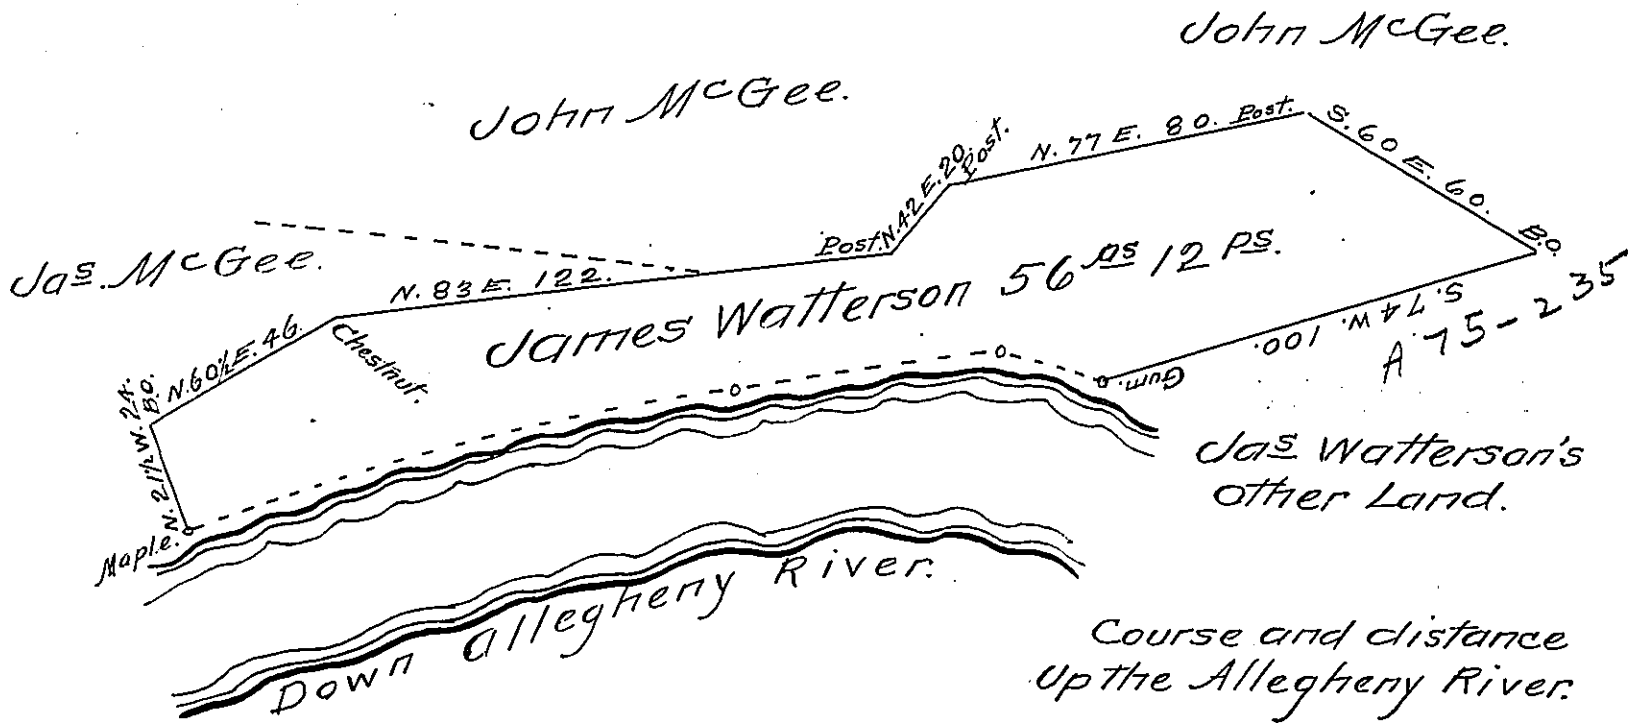 John McGee.
John McGee.
Jas. McGee.
N. 21½ W. 24.
B.O.
N. 60½ E. 46.
Chestnut.
N. 83 E. 122.
Post.
N. 42 E. 20.
Post.
N. 77 E. 80. Post.
S. 60 E. 60. B.O.
S. 74 W. 100.
Gum.
Maple.
James Watterson 56 as 12 Ps.
A 75-235
Jas Watterson's
other Land.
Down Allegheny River.
Course and distance
Up the Allegheny River.